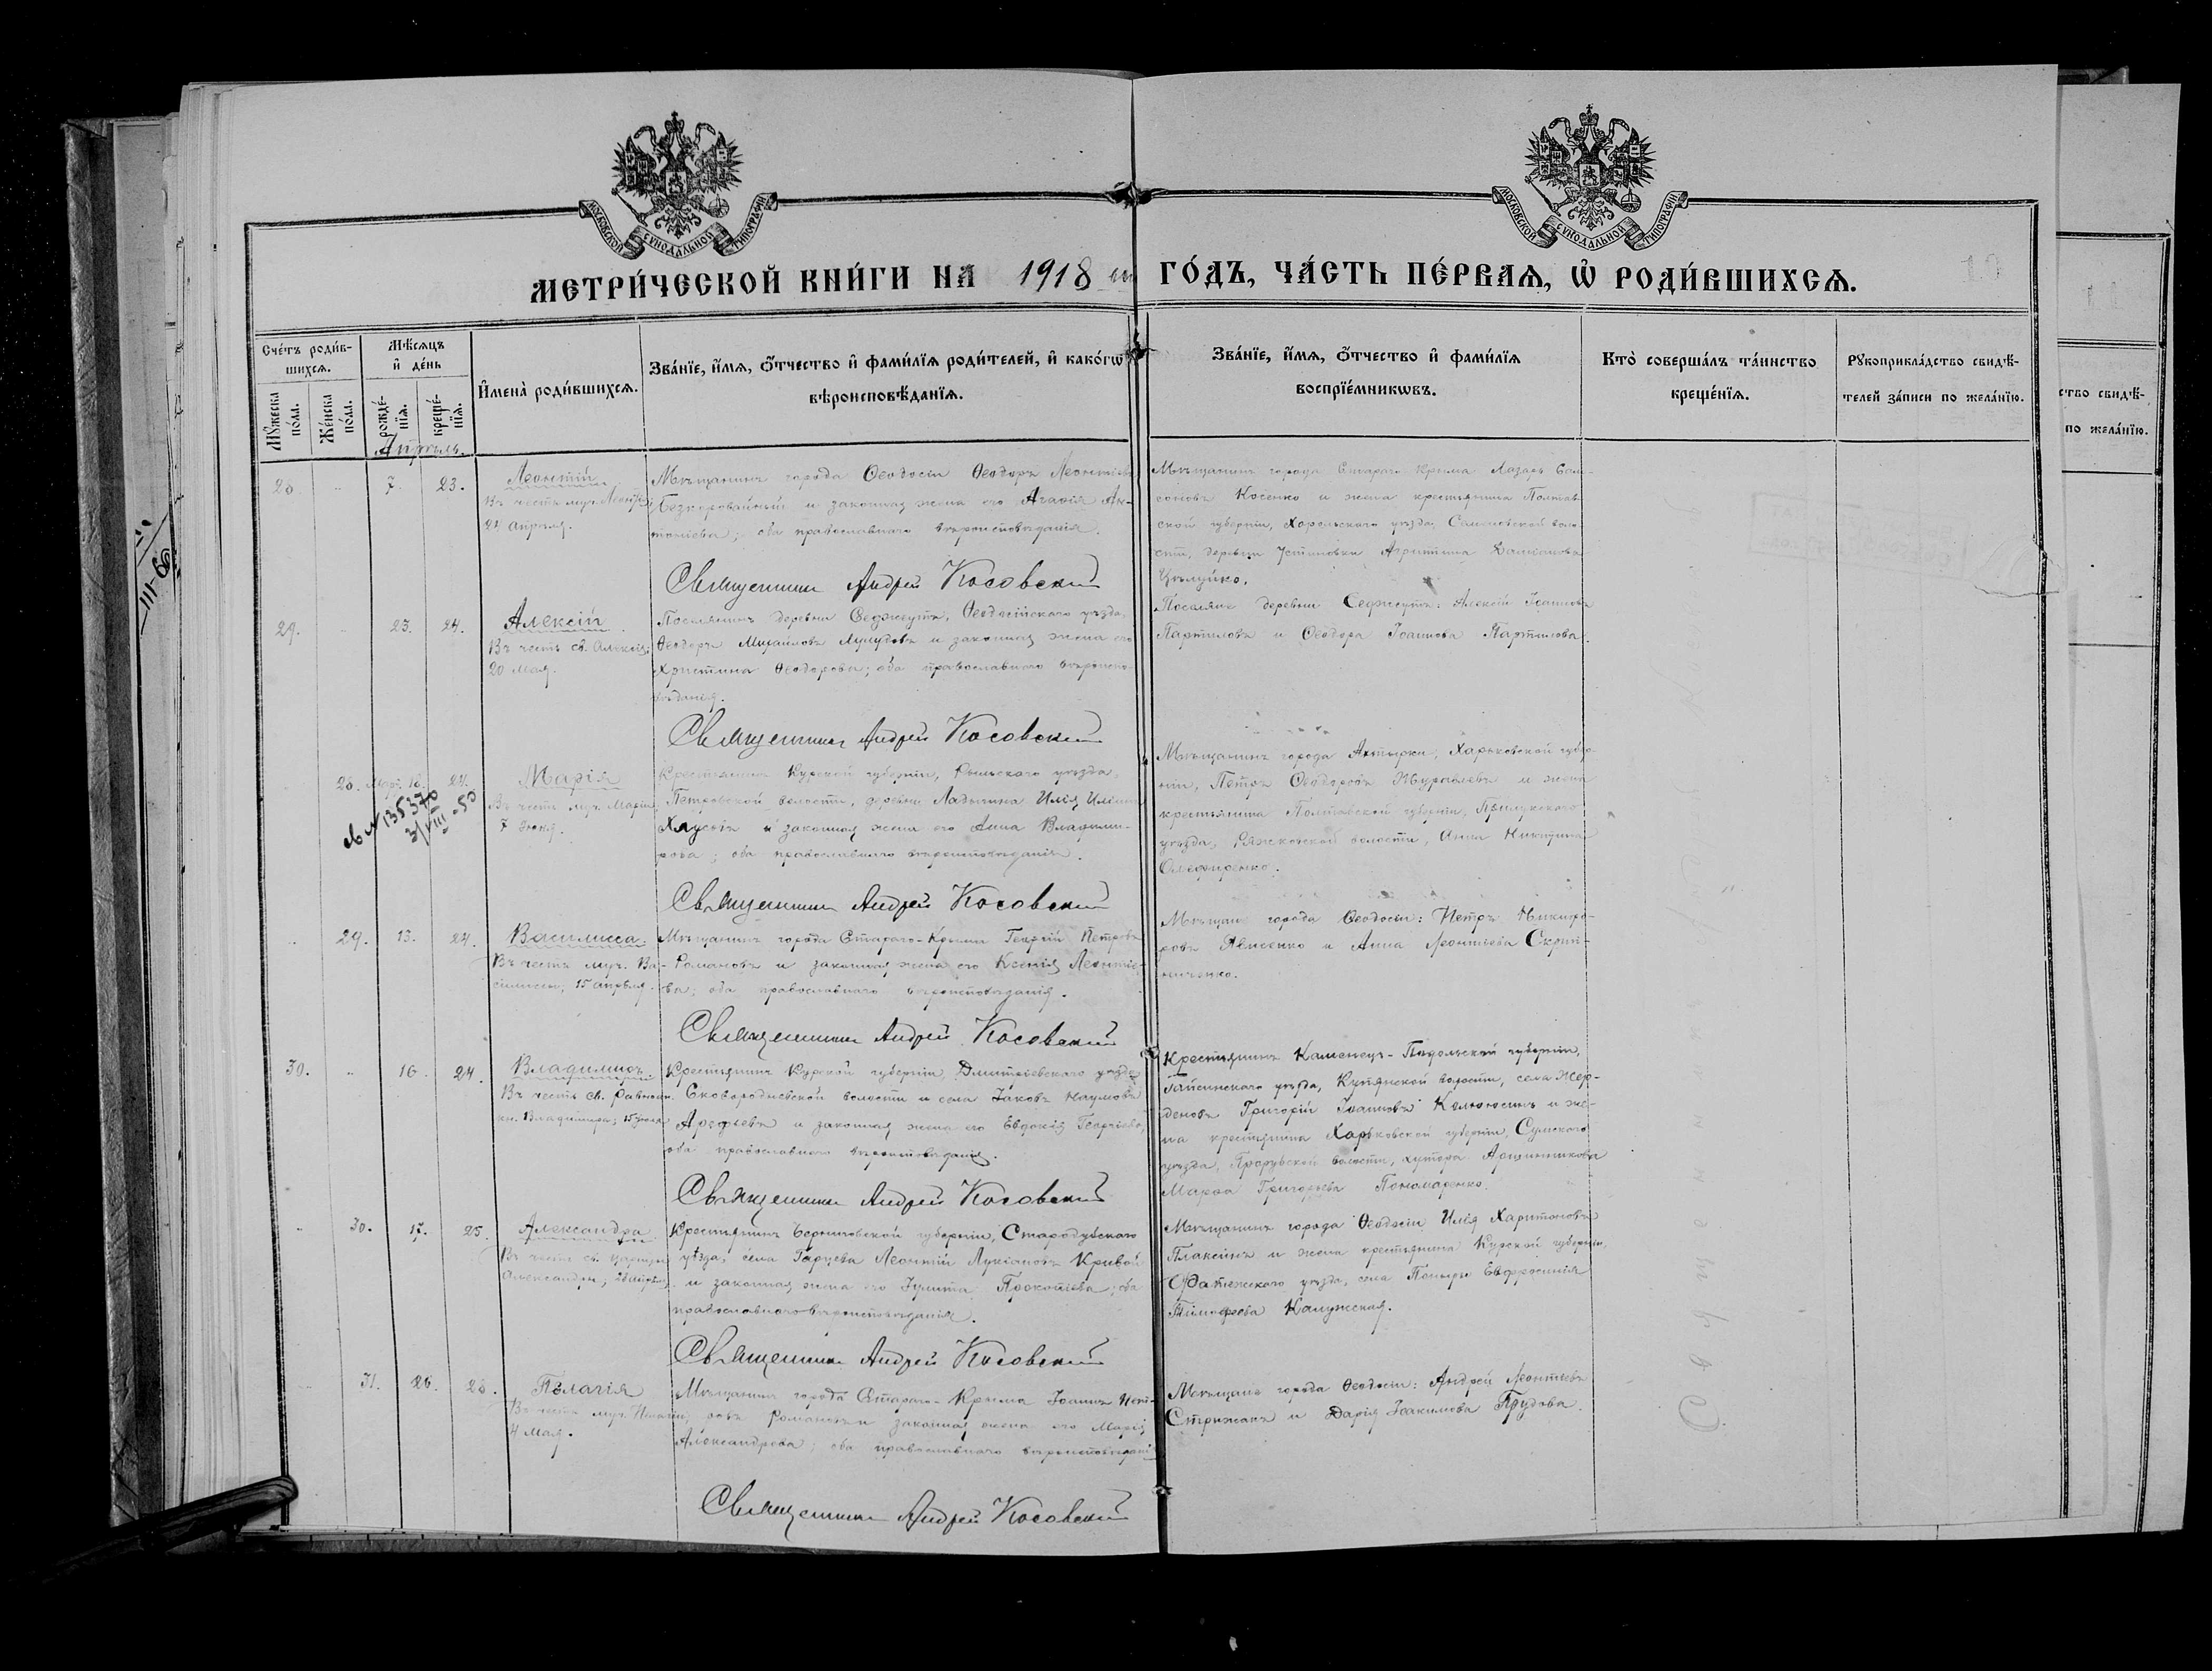 МОСКОВСКОЙ СУНОДАЛЬНОЙ ТИПОГРАФІИ
МОСКОВСКОЙ СУНОДАЛЬНОЙ ТИПОГРАФІИ
МЕТРИ́ЧЕСКОЙ КНИ́ГИ НА 1918 ый ГО́ДЪ, ЧА́СТЬ ПЕ́РВАѦ, Ѡ҆ РОДИ́ВШИХСѦ.
Сче́тъ роди́в-
шихсѧ.
Мѣ́сѧцъ
и҆ де́нь
Мꙋ́жеска
по́ла.
Же́нска
по́ла.
рожде́-
нїѧ.
креще́-
нїѧ.
И҆мена̀ роди́вшихсѧ.
Зва́нїе, и҆́мѧ, ѻ҆́тчество и҆ фами́лїѧ роди́телей, и҆ како́гѡ
вѣроисповѣ́данїѧ.
Зва́нїе, и҆́мѧ, ѻ҆́тчество и҆ фами́лїѧ
воспрїе́мникѡвъ.
Кто̀ соверша́лъ та́инство
креще́нїѧ.
Рꙋкоприкла́дство свидѣ́-
телей за́писи по жела́нїю.
ство свидѣ́-
по жела́нїю.
Апрѣль.
28. 7. 23.
Леонтій
Въ честь муч. Леонтія
24 Апрѣля.
Мѣщанинъ города Ѳеодосіи Ѳеодоръ Леонтіевъ
Безкоровайный и законная жена его Агаѳія Ан-
тоніева; оба православнаго вѣроисповѣданія.
Священникъ Андрей Косовскій
Мѣщанинъ города Стараго Крыма Лазарь Сам-
соновъ Косенко и жена крестьянина Полтав-
ской губерніи, Хорольскаго уѣзда, Семеновской воло-
сти, деревни Устимовки Агрипина Даміанова
Цѣлуйко.
29. 23. 24.
Алексій
Въ честь св. Алексія;
20 Мая.
Поселянинъ деревни Седжеутъ, Ѳеодосійскаго уѣзда,
Ѳеодоръ Михаиловъ Лупудовъ и законная жена его
Христина Ѳеодорова; оба православнаго вѣроиспо-
вѣданія.
Священникъ Андрей Косовскій
Поселяне деревни Седжеутъ: Алексій Іоанновъ
Партиловъ и Ѳеодора Іоаннова Партилова.
28. Март. 18. 24.
№ 135370
3/VIII-50
Марія
Въ честь муч. Маріи,
7 Іюня.
Крестьянинъ Курской губерніи, Рыльскаго уѣзда,
Петровской волости, деревни Ладыгина Илія Иліинъ
Хлусовъ и законная жена его Анна Владими-
рова; оба православнаго вѣроисповѣданія.
Священникъ Андрей Косовскій
Мѣщанинъ города Ахтырки, Харьковской губер-
ніи, Петръ Ѳеодоровъ Журавлевъ и жена
крестьянина Полтавской губерніи, Прилукскаго
уѣзда, Ряжковской волости, Анна Никитина
Олефиренко.
29. 13. 24.
Василисса.
Въ честь муч. Ва-
силиссы, 15 Апрѣля.
Мѣщанинъ города Стараго-Крыма Георгій Петровъ
Романовъ и законная жена его Ксенія Леонтіе-
ва; оба православнаго вѣроисповѣданія.
Священникъ Андрей Косовскій
Мѣщане города Ѳеодосіи: Петръ Никифо-
ровъ Явисенко и Анна Леонтьева Скрип-
ниченко.
30. 16. 24.
Владимиръ.
Въ честь св. Равноап.
кн. Владиміра, 15 Іюля
Крестьянинъ Курской губерніи, Дмитріевскаго уѣзда
Сковородневской волости и села Іаковъ Наумовъ
Арефьевъ и законная жена его Евдокія Георгіева,
оба православнаго вѣроисповѣданія.
Священникъ Андрей Косовскій
Крестьянинъ Каменецъ-Подольской губерніи,
Гайсинскаго уѣзда, Кунянской волости, села Жер-
деновъ Григорій Іоанновъ и же-
на крестьянина Харьковской губерніи, Сумскаго
уѣзда, Прорубской волости, хутора Аршинникова
Марѳа Григорьева Пономаренко.
30. 17. 25.
Александра.
Въ честь св. царицы
Александры, 23 Апрѣля
Крестьянинъ Черниговской губерніи, Стародубскаго
уѣзда, села Гарцева Леонтій Лукіановъ Кривой
и законная жена его Іулитта Прокопіева; оба
православнаго вѣроисповѣданія.
Священникъ Андрей Косовскій
Мѣщанинъ города Ѳеодосіи Илія Харитоновъ
Плаксинъ и жена крестьянина Курской губерніи,
Фатежскаго уѣзда, села Поныри Евфросинія
Тимоѳеева Калужская.
31. 26. 28.
Пелагія
Въ честь муч. Пелагіи,
4 Мая.
Мѣщанинъ города Стараго-Крыма Іоаннъ Пет-
ровъ Романовъ и законная жена его Марія
Александрова; оба православнаго вѣроисповѣданія
Священникъ Андрей Косовскій
Мѣщане города Ѳеодосіи: Андрей Леонтьевъ
Стрижакъ и Дарія Іоакимова Прудова.